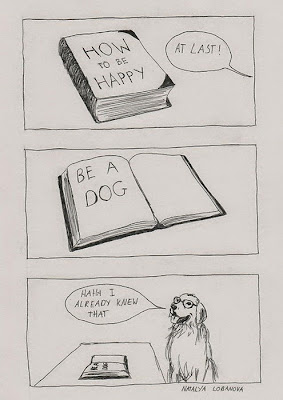 HOW
TO BE
HAPPY
AT LAST!
BE A
DOG
HAHA I
ALREADY KNEW
THAT
BE A
NATALYA LOBANOVA